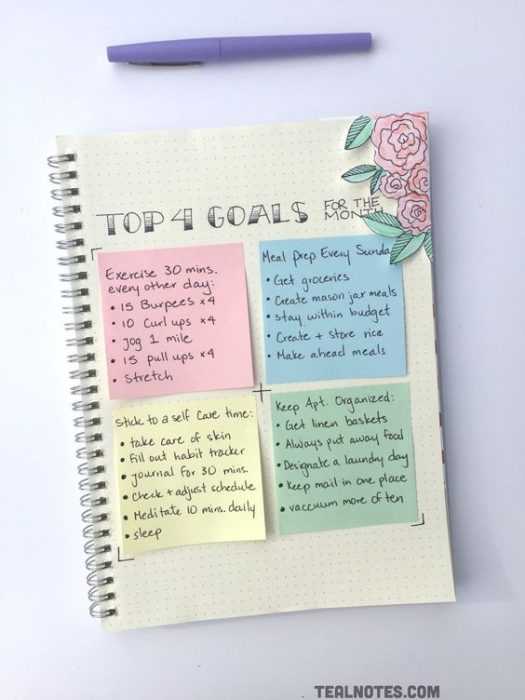 TOP 4 GOALS
FOR THE
MONTH
Exercise 30 mins.
every other day:
• 15 Burpees x4
• 10 Curl ups x4
• jog 1 mile
• 15 pull ups x4
• Stretch
Meal Prep Every Sunda
• Get groceries
• Create mason jar meals
• Stay within budget
• Create + Store rice
• Make ahead meals
Stick to a self care time:
• take care of skin
• Fill out habit tracker
• journal for 30 mins.
• Check + adjust schedule
• Meditate 10 mins. daily
• sleep
Keep Apt. Organized:
• Get linen baskets
• Always put away food
• Designate a laundry day
• Keep mail in one place
• vaccuum more often
TEALNOTES.COM